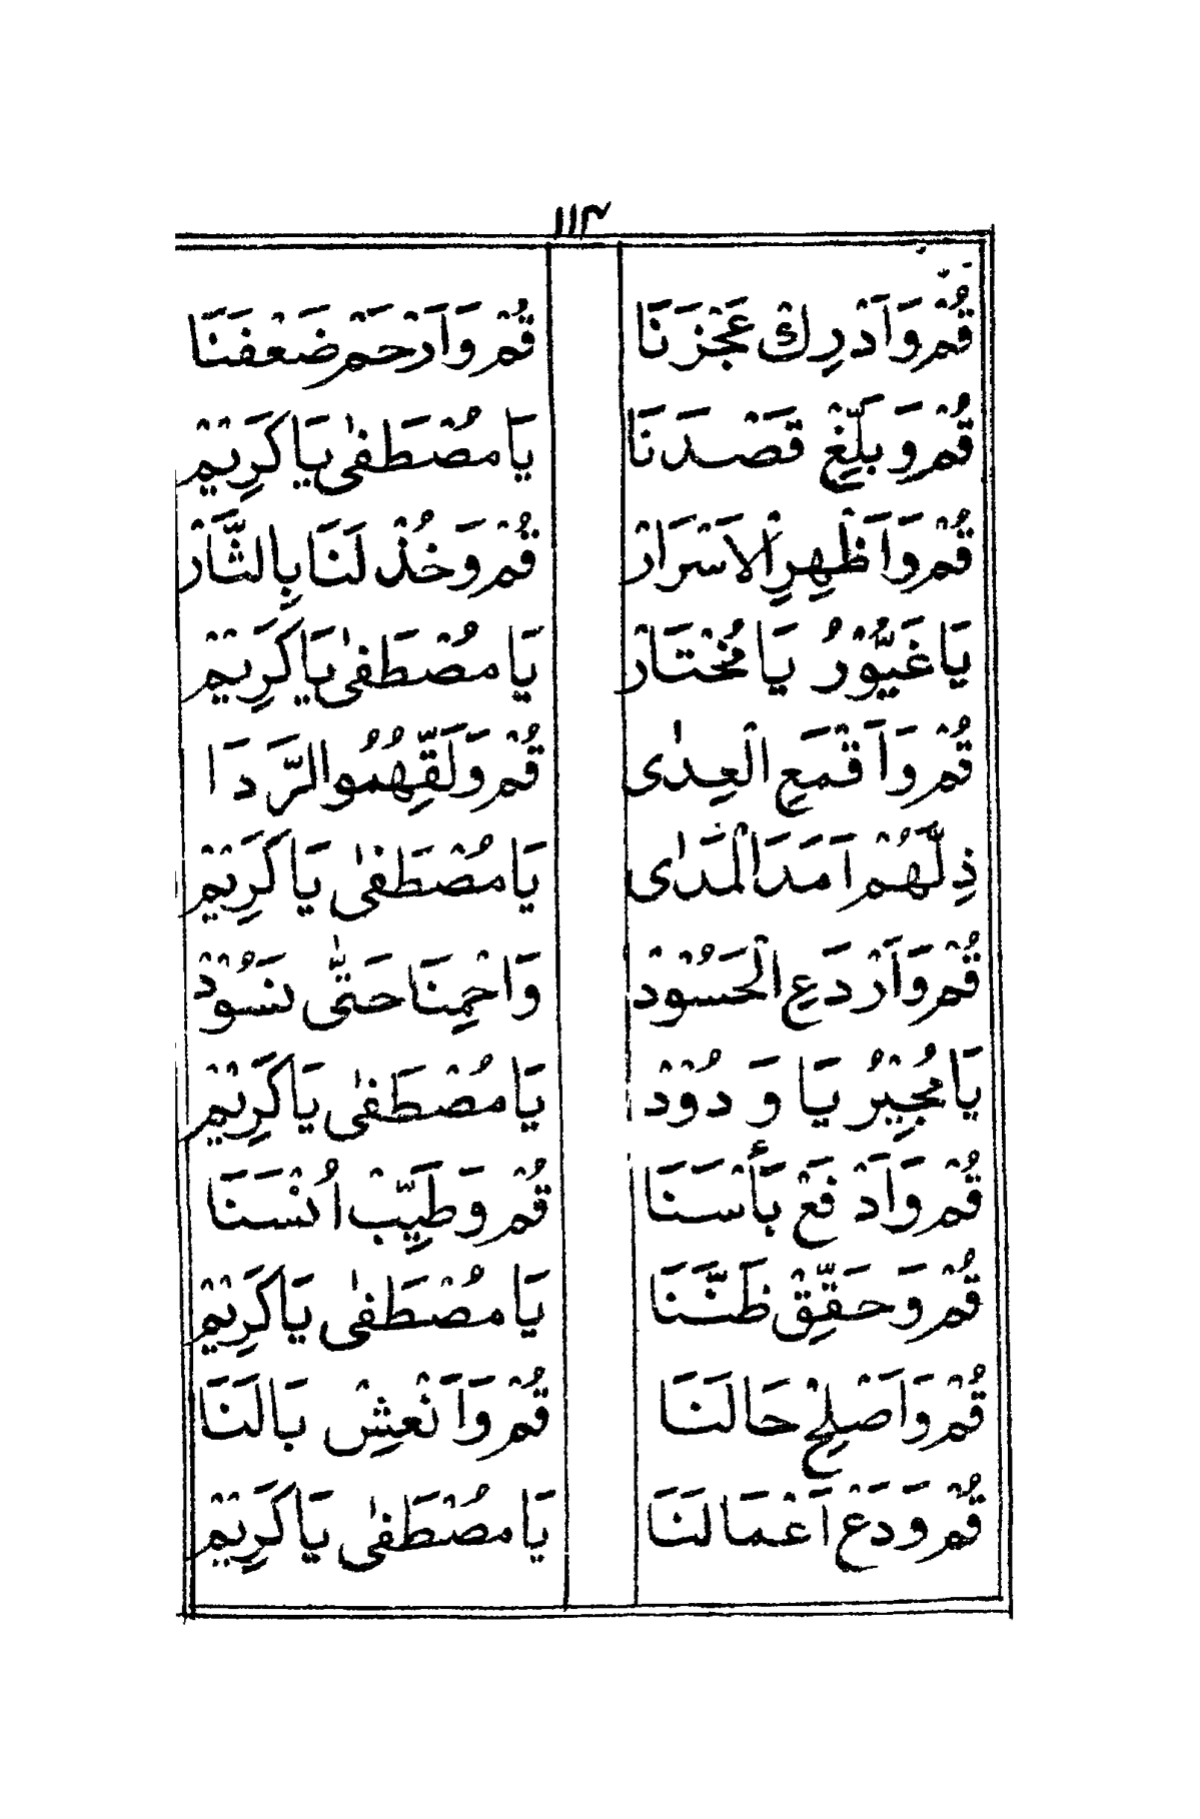 ١١٣
قُمْ وَاَدْرِكْ عَجْزَنَا قُمْ وَارْحَمْ ضَعْفَنَا
قُمْ وَبَلِّغْ قَصْدَنَا يَا مُصْطَفٰى يَا كَرِيْمْ
قُمْ وَاَظْهِرِ الْاَسْرَارْ قُمْ وَخُذْ لَنَا بِالثَّارْ
يَا غَيُّوْرُ يَا مُخْتَارْ يَا مُصْطَفٰى يَا كَرِيْمْ
قُمْ وَاَقْمَعِ الْعِدٰى قُمْ وَلَقِّهُمُوا الرَّدَا
ذِلَّهُمْ اَمَدَ الْمَدٰى يَا مُصْطَفٰى يَا كَرِيْمْ
قُمْ وَاَرْدَعِ الْحَسُوْدْ وَاحْمِنَا حَتّٰى نَسُوْدْ
يَا مُجِيْرُ يَا وَدُوْدْ يَا مُصْطَفٰى يَا كَرِيْمْ
قُمْ وَاَدْفَعْ بَأْسَنَا قُمْ وَطَيِّبْ اُنْسَنَا
قُمْ وَحَقِّقْ ظَنَّنَا يَا مُصْطَفٰى يَا كَرِيْمْ
قُمْ وَاَصْلِحْ حَالَنَا قُمْ وَاَنْعِشْ بَالَنَا
قُمْ وَدَعْ اَعْمَالَنَا يَا مُصْطَفٰى يَا كَرِيْمْ